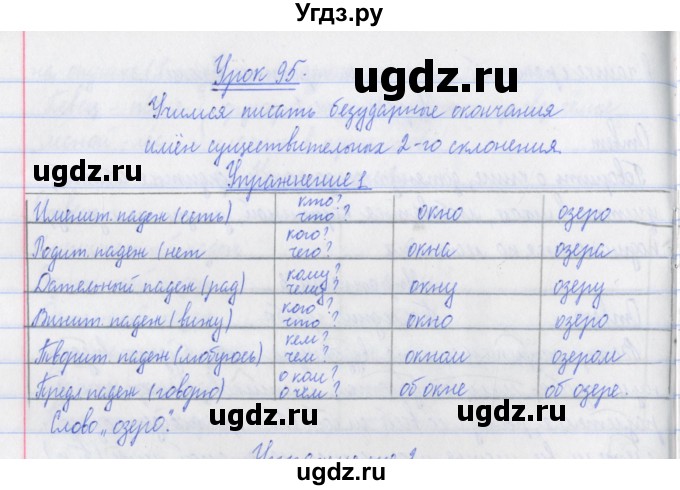 Угдз.ру
Урок 95.
ugdz.ru
Учимся писать безударные окончания
имён существительных 2-го склонения.
ugdz.ru
ugdz.ru
Упражнение 1
Именит. падеж (есть) кто? что? окно озеро
Родит. падеж (нет кого? чего? окна озера
Дательный падеж (рад) кому? чему? окну озеру
Винит. падеж (вижу) кого? что? окно озеро
Творит. падеж (любуюсь) кем? чем? окном озером
Предл. падеж (говорю) о ком? о чем? об окне об озере.
ugdz.ru
ugdz.ru
Слово „озеро".
ugdz.ru